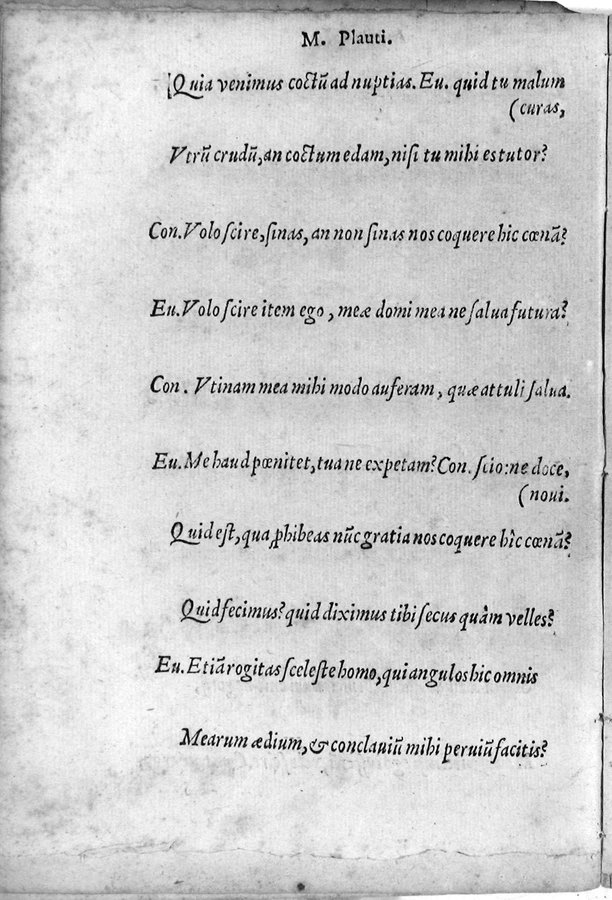 M. Plauti.
Quia venimus coctũ ad nuptias. Eu. quid tu malum
(curas,
Vtrũ crudũ, an coctum edam, nisi tu mihi es tutor?
Con. Volo scire, sinas, an non sinas nos coquere hic cœnã?
Eu. Volo scire item ego, meæ domi mea ne salua futura?
Con. Vtinam mea mihi modo auferam, quæ attuli salua.
Eu. Me haud pœnitet, tua ne expetam? Con. scio: ne doce,
(noui.
Quid est, qua ꝓhibeas nũc gratia nos coquere hîc cœnã?
Quid fecimus? quid diximus tibi secus quàm velles?
Eu. Etiã rogitas sceleste homo, qui angulos hic omnis
Mearum ædium, & conclauiũ mihi peruiũ facitis?